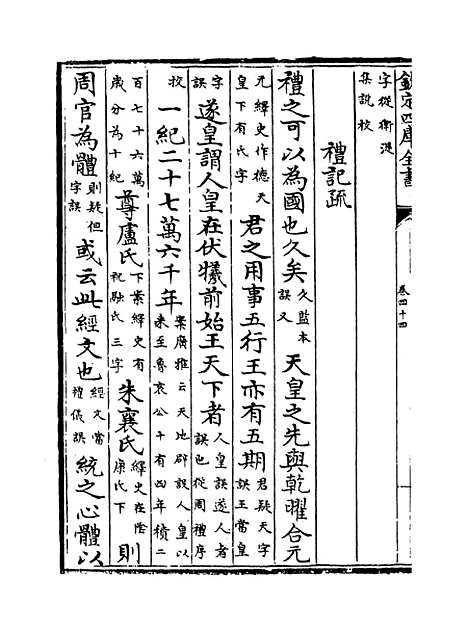 欽定四庫全書
卷四十四
字從衛湜集說校
禮記疏
禮之可以為國也久矣久監本誤又天皇之先與乾曜合元
元繹史作德天皇下有氏字君之用事五行王亦有五期君疑天字誤王當皇
字誤遂皇謂人皇在伏犧前始王天下者人皇誤遂人者誤也從周禮序
校一紀二十七萬六千年案廣雅云天地辟設人皇以來至魯哀公十有四年積二
百七十六萬歲分為十紀尊盧氏下案繹史有祝融氏三字朱襄氏繹史在陰康氏下則
周官為體則疑但字誤或云此經文也經文當禮儀誤統之心體以